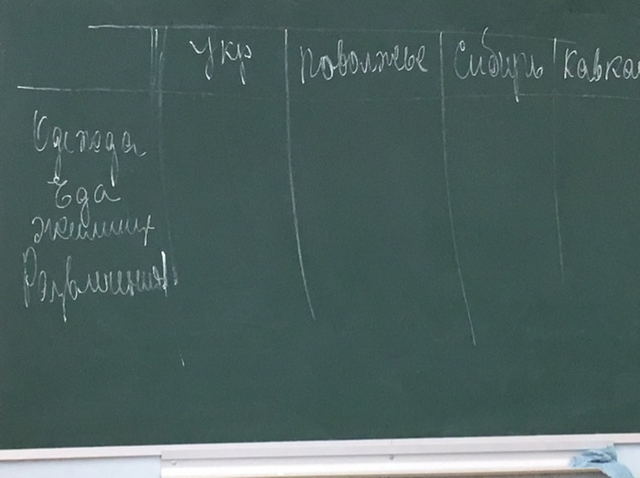 Укр Поволжье Сибирь Кавка
Одежда
Еда
Жилища
Развлечения